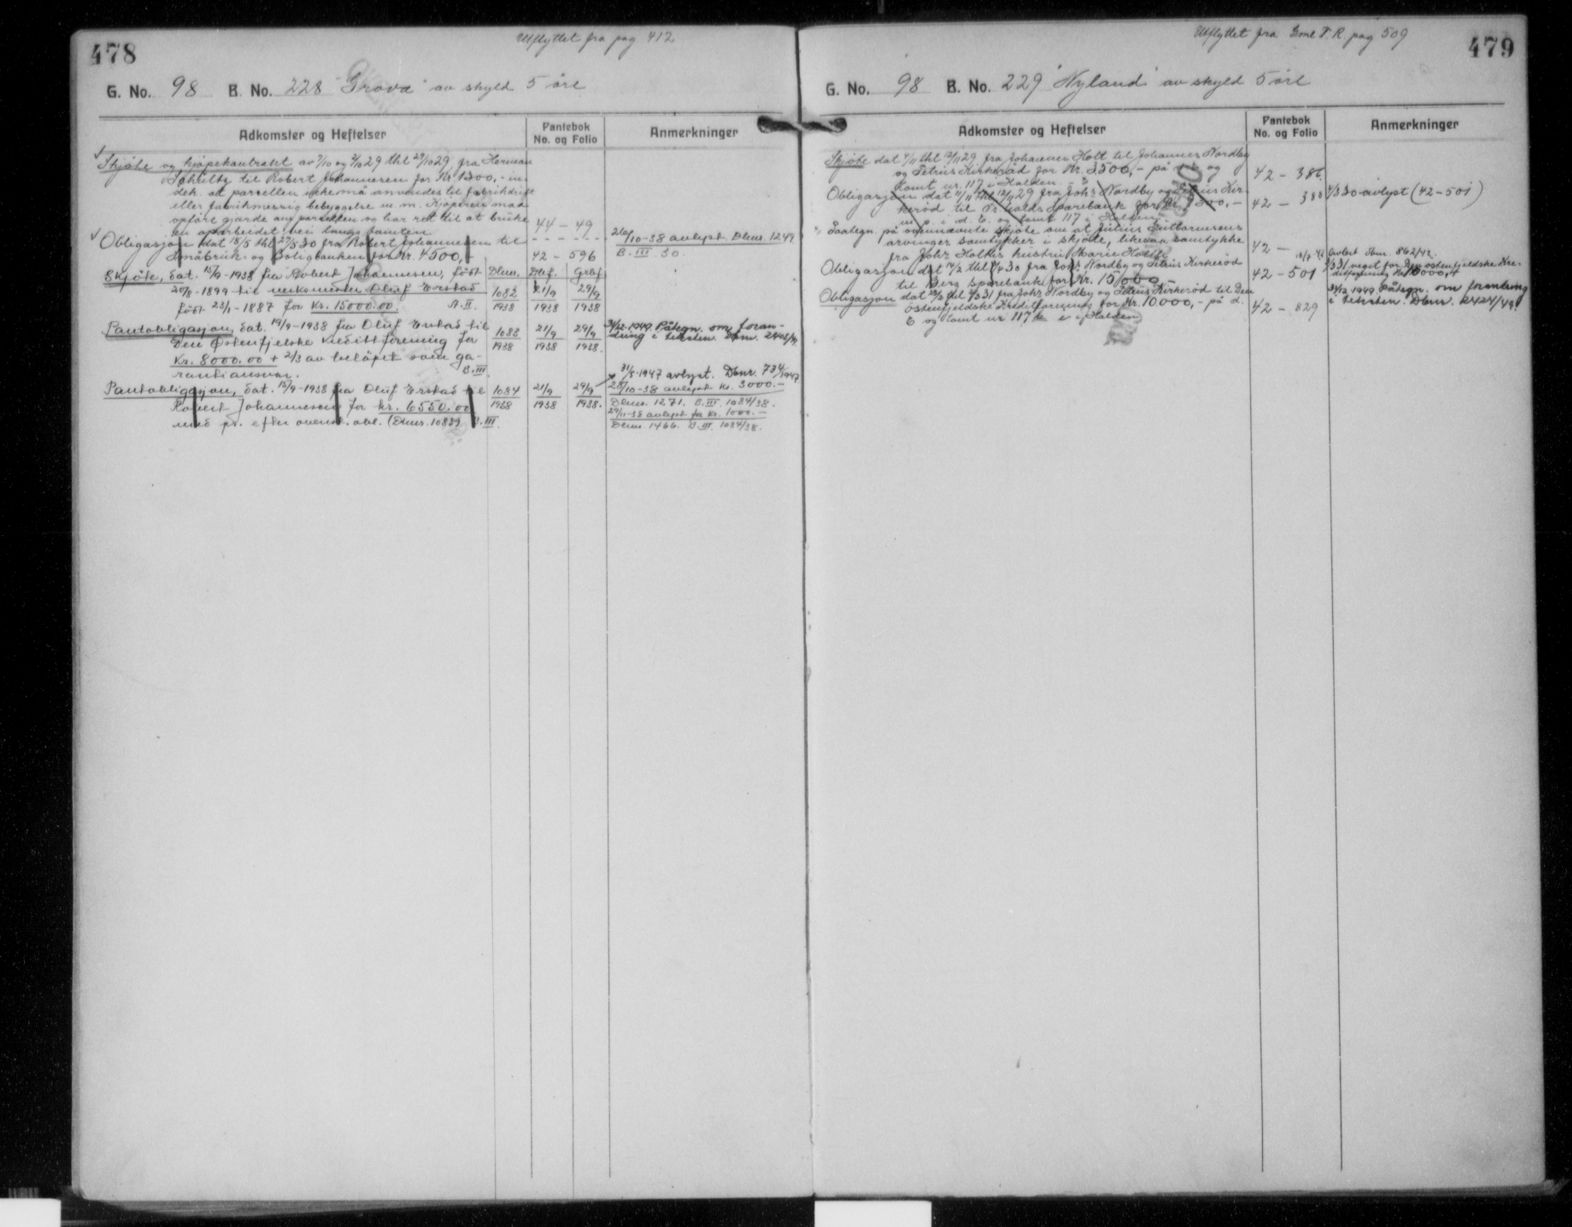 478
Utflyttet fra pag 412
G. No. 98 B. No. 228 "Grova" av skyld 5 øre
Adkomster og Heftelser
Pantebok
No. og Folio
Anmerkninger
Skjøte og kjøpekontrakt av 7/10 og 9/10 29 thl 29/10 29 fra Herman
Schultz til Robert Johannesen for Kr. 1300,- in-
dek. at parcellen ikke må anvendes til fabrikdrift
eller fabrikmessig bebyggelse m. m. Kjøperen må
opføre gjærde om parcellen og har ret til at bruke
en oparbeidet vei langs tomten. 44 – 49
Obligasjon dat 18/5 thl 27/5 30 fra Robert Johannesen til
Småbruk- og Boligbanken for Kr. 4500,- 42 – 596
26/10-38 avlyst Dbnr. 1249
B. III 50.
Skjøte, dat. 15/9-1938 fra Robert Johannesen, født
20/8-1899 til murmester Oluf Enstad
født 23/1-1887 for Kr. 15000.00. A. II.
Dbnr. Dbf. Grbf.
1082 21/9 29/9
1938 1938 1938
Pantobligasjon, dat. 19/9-1938 fra Oluf Enstad til
Den Østenfjelske Kredittforening for
Kr. 8000.00 + 2/3 av beløpet som ga-
rantiansvar. B. III.
1083 21/9 29/9
1938 1938 1938.
31/12-1949 Påtegn. om foran-
dring i teksten. Dbnr.
Pantobligasjon, dat. 15/9-1938 fra Oluf Enstad til
Robert Johannesen for kr. 6550.00
med pr. efter ovenst. obl. (Dbnr. 1083) B. III.
1084 21/9 29/9
1938 1938 1938.
31/5-1947 avlyst. Dbnr. 734/1947
28/10-38 avlyst kr. 3000.-
Dbnr. 1271. B. III. 1084/38.
29/11-38 avlyst for kr. 1000.-
Dbnr. 1466. B. III. 1084/38.
479
Utflyttet fra Gml P. R. pag 509
G. No. 98 B. No. 229 "Nyland" av skyld 5 øre
Adkomster og Heftelser
Pantebok
No. og Folio
Anmerkninger
Skjøte dat 1/11 thl 12/11 29 fra Johannes Holt til Johannes Nordby
og Petrus Kirkerød for Kr. 3500,- på og
tomt nr. 117 i Halden. 42 – 386
Obligasjon dat 11/11 thl 12/11 29 fra Johs Nordby og Petrus Kir-
kerød til Sparebank for Kr.
m. p. i d. E. og tomt 117 i Halden. 42 – 388
4/3 30 avlyst (42 – 501)
Paategn. på ovennævnte skjøte om at Guttormsens
arvinger samtykker i skjøte, likesaa samtykke
fra Johs Holtes hustru Marie Holte. 42 –
Obligasjon dat 17/2 thl 4/4 30 fra Johs Nordby og Petrus Kirkerød
til Berg Sparebank for Kr. 15000,- 42 – 501
avlyst Dbnr. 862/42.
veget for Den østenfjeldske Kre-
ditforening Kr. 10000,-
Obligasjon dat thl 4/5 31 fra Johs Nordby og Petrus Kirkerød til Den
østenfjeldske Kreditforening for Kr. 10000,- på d.
E og tomt nr 117 i Halden 42 – 829
31/12 1949 Påtegn. om forandring
i teksten. Dbnr. 2424/49.